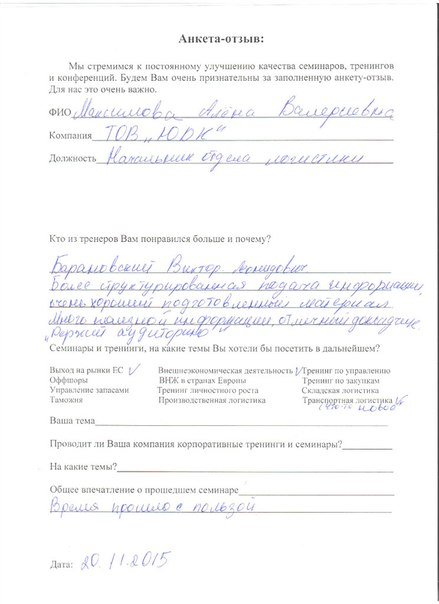 Анкета-отзыв:
Мы стремимся к постоянному улучшению качества семинаров, тренингов
и конференций. Будем Вам очень признательны за заполненную анкету-отзыв.
Для нас это очень важно.
ФИО Максимова Алёна Валериевна
Компания ТОВ „ЮДК“
Должность Начальник отдела логистики
Кто из тренеров Вам понравился больше и почему?
Барановский Виктор Леонидович
Более структурированная подача информации,
очень хороший подготовленный материал
Много полезной информации, отличный докладчик,
„Держит аудиторию“
Семинары и тренинги, на какие темы Вы хотели бы посетить в дальнейшем?
Выход на рынки ЕС √ Внешнеэкономическая деятельность √ Тренинг по управлению
Оффшоры ВНЖ в странах Европы Тренинг по закупкам
Управление запасами Тренинг личностного роста Складская логистика
Таможня Производственная логистика Транспортная логистика √
новое
Ваша тема
Проводит ли Ваша компания корпоративные тренинги и семинары?
На какие темы?
Общее впечатление о прошедшем семинаре
Время прошло с пользой
Дата: 20.11.2015